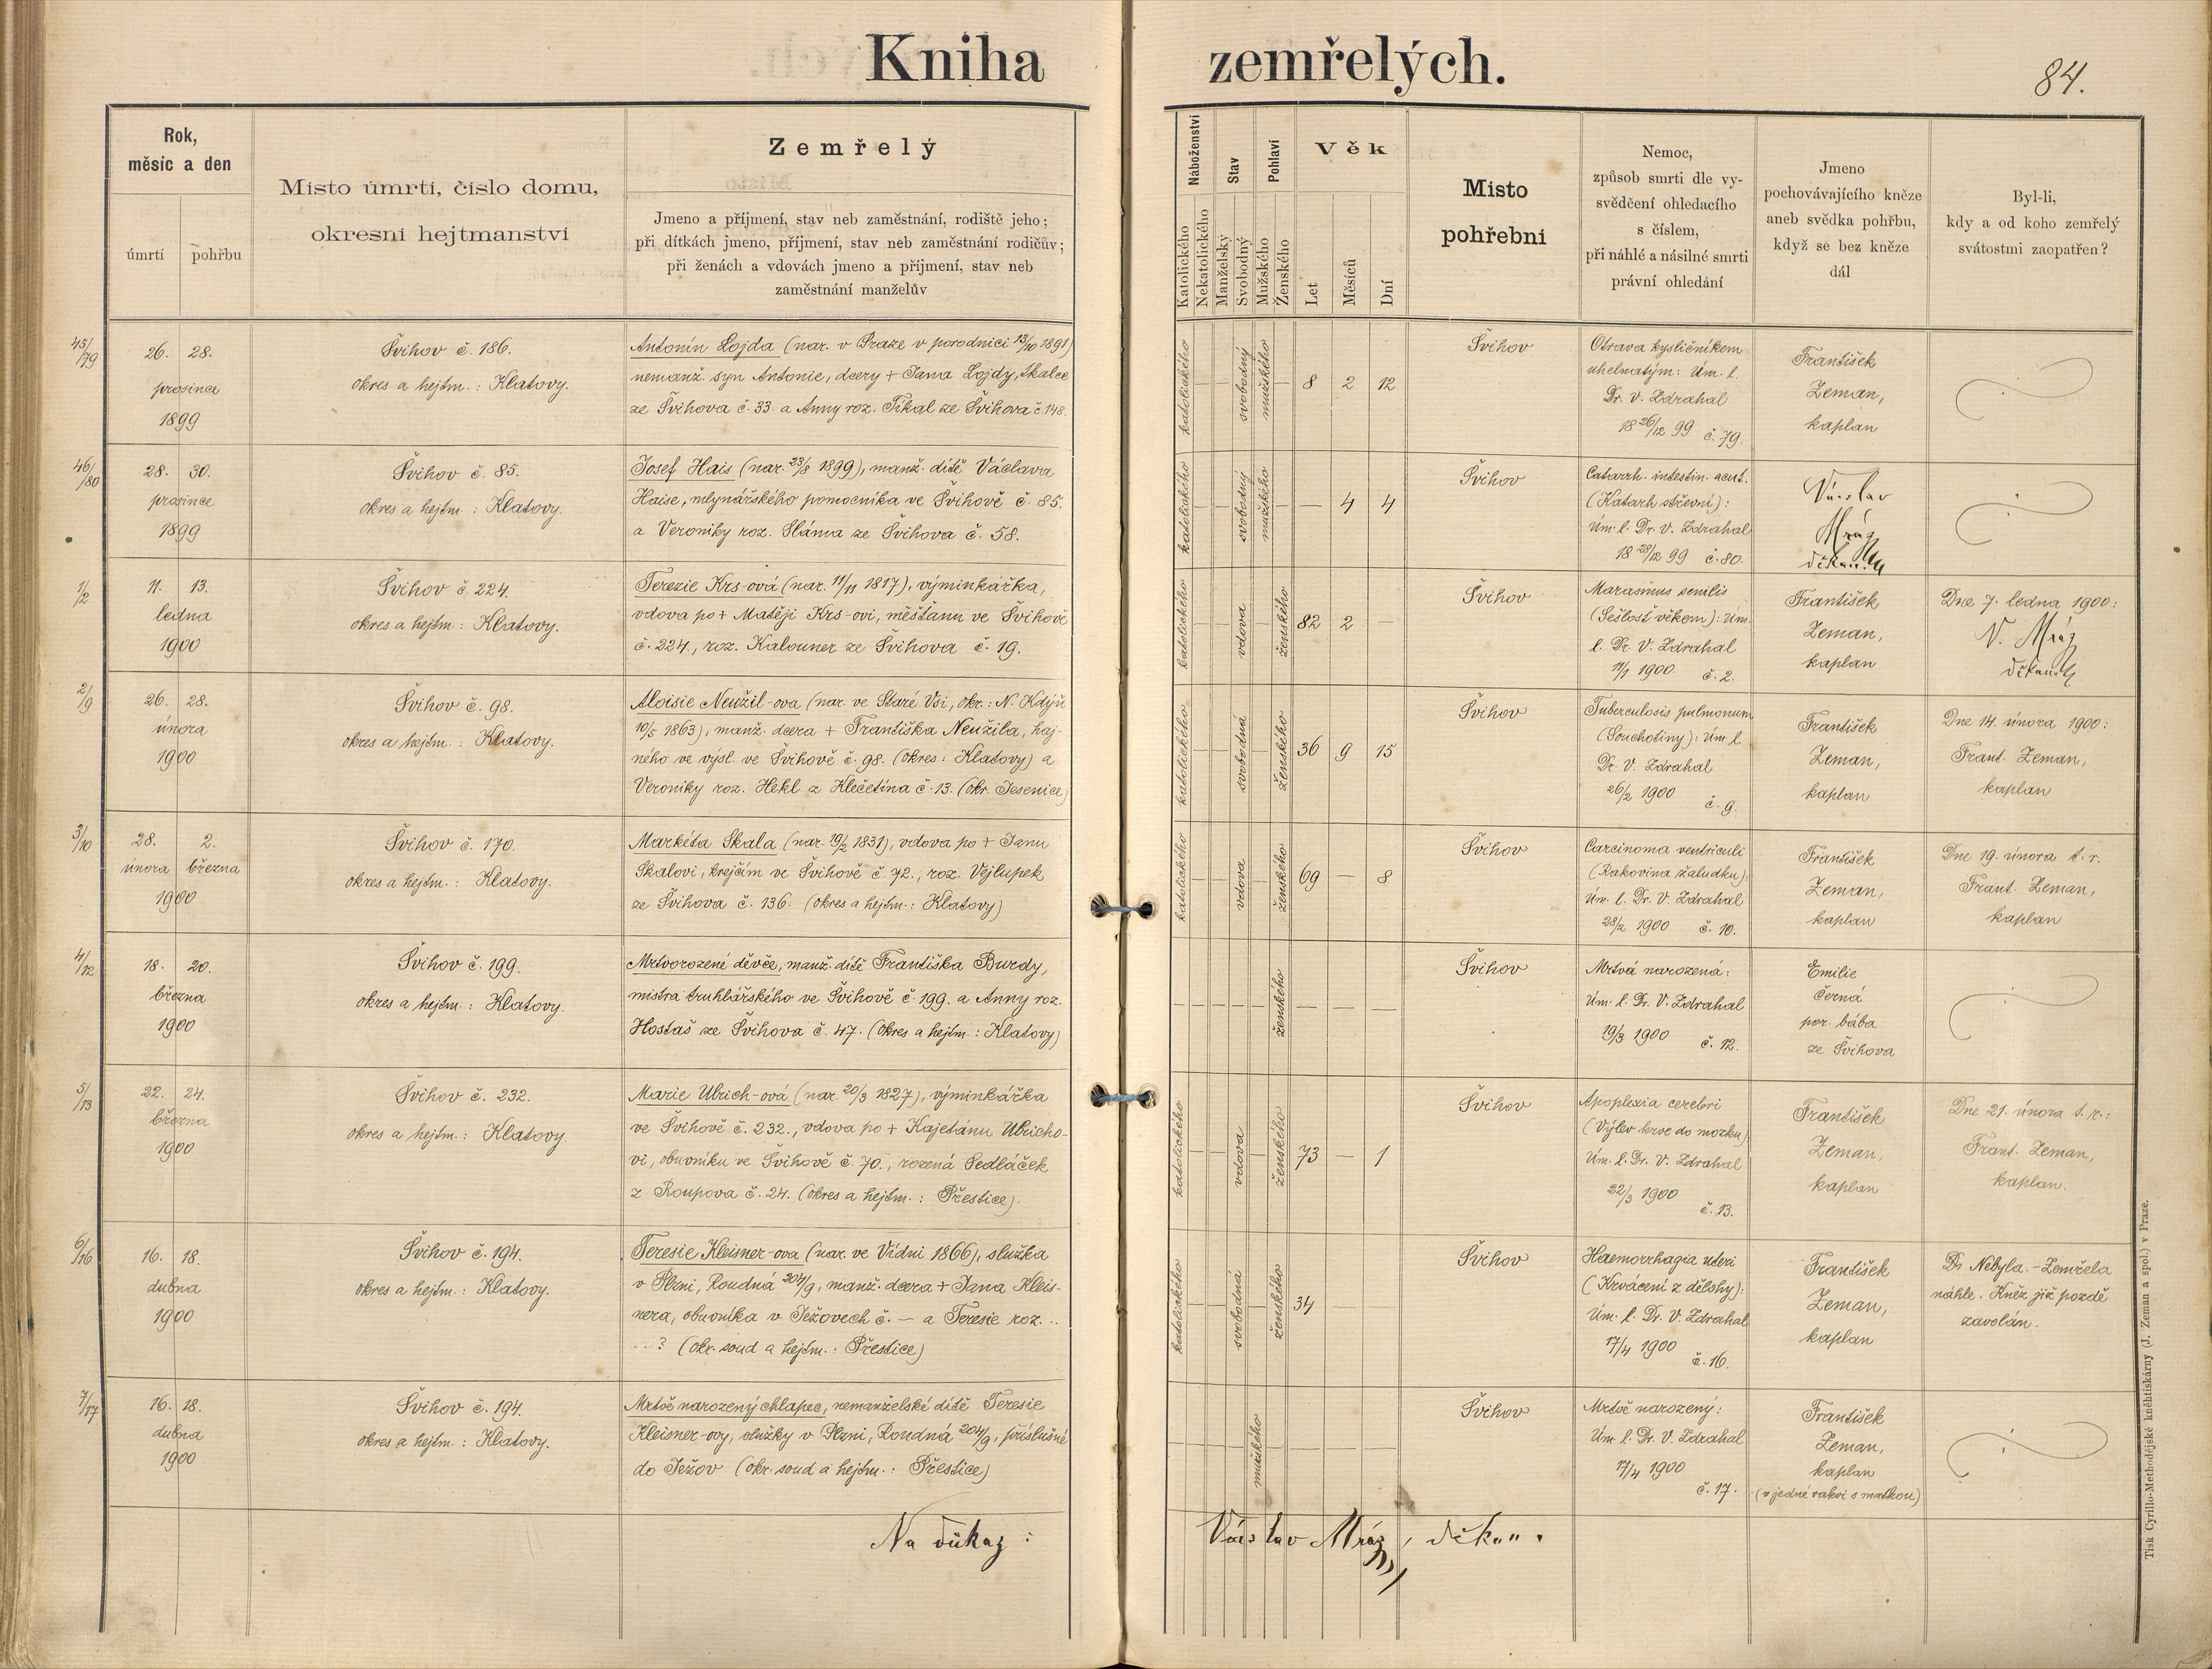 Kniha zemřelých.
84.
Rok,
měsíc a den
úmrtí
pohřbu
Místo úmrtí, číslo domu,
okresní hejtmanství
Zemřelý
Jmeno a příjmení, stav neb zaměstnání, rodiště jeho;
při dítkách jmeno, příjmení, stav neb zaměstnání rodičův;
při ženách a vdovách jmeno a příjmení, stav neb
zaměstnání manželův
Náboženství
Katolického
Nekatolického
Stav
Manželský
Svobodný
Pohlaví
Mužského
Ženského
Věk
Let
Měsíců
Dní
Místo
pohřební
Nemoc,
způsob smrti dle vy-
svědčení ohledacího
s číslem,
při náhlé a násilné smrti
právní ohledání
Jmeno
pochovávajícího kněze
aneb svědka pohřbu,
když se bez kněze
dál
Byl-li,
kdy a od koho zemřelý
svátostmi zaopatřen?
45/79
26. 28.
prosince
1899
Švihov č. 186.
okres a hejtm.: Klatovy.
Antonín Lojda (nar. v Praze v porodnici 13/10 1891)
nemanž. syn Antonie, dcery + Jana Lojdy, tkalce
ze Švihova č. 33. a Anny roz. Tikal ze Švihova č. 148.
katolického — — svobodný mužského — 8 2 12
Švihov
Otrava kysličníkem
uhelnatým: Úm. l.
Dr. V. Zdrahal
18 26/12 99 č. 79.
František
Zeman,
kaplan
46/80
28. 30.
prosince
1899
Švihov č. 85.
okres a hejtm.: Klatovy.
Josef Hais (nar. 23/8 1899), manž. dítě Václava
Haise, mlynářského pomocníka ve Švihově č. 85.
a Veroniky roz. Sláma ze Švihova č. 58.
katolického — — svobodný mužského — — 4 4
Švihov
Catarrh. intestin. acut.
(Katarh střevní):
Úm. l. Dr. V. Zdrahal
18 28/12 99 č. 80.
Václav
Mráz
děkan
1/2
11. 13.
ledna
1900
Švihov č. 224.
okres a hejtm.: Klatovy.
Terezie Krs-ová (nar. 11/11 1817), výminkářka,
vdova po + Matěji Krs-ovi, měšťanu ve Švihově
č. 224., roz. Kalouner ze Švihova č. 19.
katolického — — vdova — ženského 82 2 —
Švihov
Marasmus senilis
(Sešlosť věkem): Úm.
l. Dr. V. Zdrahal
11/1 1900 č. 2.
František
Zeman,
kaplan
Dne 7. ledna 1900:
V. Mráz
děkan
2/9
26. 28.
února
1900
Švihov č. 98.
okres a hejtm.: Klatovy.
Aloisie Neužil-ova (nar. ve Staré Vsi, okr.: N. Kdýň
10/5 1863), manž. dcera + Františka Neužila, haj-
ného ve výsl. ve Švihově č. 98. (okres: Klatovy) a
Veroniky roz. Hekl z Klečetína č. 13. (okr. Jesenice)
katolického — — svobodná — ženského 36 9 15
Švihov
Tuberculosis pulmonum
(Souchotiny): Úm. l.
Dr. V. Zdrahal
26/2 1900 č. 9.
František
Zeman,
kaplan
Dne 14. února 1900:
Frant. Zeman,
kaplan
3/10
28. 2.
února března
1900
Švihov č. 170.
okres a hejtm.: Klatovy.
Markéta Skala (nar. 19/2 1831), vdova po + Janu
Skalovi, krejčím ve Švihově č. 72., roz. Vejlupek
ze Švihova č. 136. (okres a hejtm.: Klatovy)
katolického — — vdova — ženského 69 — 8
Švihov
Carcinoma ventriculi
(Rakovina žaludku):
Úm. l. Dr. V. Zdrahal
28/2 1900 č. 10.
František
Zeman,
kaplan
Dne 19. února t. r.
Frant. Zeman,
kaplan
4/12
18. 20.
března
1900
Švihov č. 199.
okres a hejtm.: Klatovy.
Mrtvorozené děvče, manž. dítě Františka Burdy,
mistra truhlářského ve Švihově č. 199. a Anny roz.
Hostaš ze Švihova č. 47. (okres a hejtm.: Klatovy)
— — — — — ženského — — —
Švihov
Mrtvá narozená:
Úm. l. Dr. V. Zdrahal
19/3 1900 č. 12.
Emilie
Černá
por. bába
ze Švihova
5/13
22. 24.
března
1900
Švihov č. 232.
okres a hejtm.: Klatovy.
Marie Ulrich-ová (nar. 20/3 1827), výminkářka
ve Švihově č. 232., vdova po + Kajetánu Ulricho-
vi, obuvníku ve Švihově č. 70., rozená Sedláček
z Roupova č. 24. (okres a hejtm.: Přestice).
katolického — — vdova — ženského 73 — 1
Švihov
Apoplexia cerebri
(Výlev krve do mozku)
Úm. l. Dr. V. Zdrahal
22/3 1900
č. 13.
František
Zeman,
kaplan
Dne 21. února t. r.:
Frant. Zeman,
kaplan.
6/16
16. 18.
dubna
1900
Švihov č. 194.
okres a hejtm.: Klatovy.
Teresie Kleisner-ova (nar. ve Vídni 1866), služka
v Plzni, Roudná 204/9, manž. dcera + Jana Kleis-
nera, obuvníka v Ježovech č. — a Teresie roz. ..
...? (okr. soud a hejtm.: Přestice)
katolického — — svobodná — ženského 34
Švihov
Haemorrhagia uteri
(Krvácení z dělohy):
Úm. l. Dr. V. Zdrahal
17/4 1900
č. 16.
František
Zeman,
kaplan
Nebyla. – Zemřela
náhle. Kněz již pozdě
zavolán.
7/17
16. 18.
dubna
1900
Švihov č. 194.
okres a hejtm.: Klatovy.
Mrtvě narozený chlapec, nemanželské dítě Teresie
Kleisner-ovy, služky v Plzni, Roudná 204/9, příslušné
do Ježov (okr. soud a hejtm.: Přestice)
— — — — mužského — — — —
Švihov
Mrtvě narozený:
Úm. l. Dr. V. Zdrahal
17/4 1900
č. 17.
František
Zeman,
kaplan
(v jedné rakvi s matkou)
Na důkaz: Václav Mráz, děkan.
Tisk Cyrillo-Methodějské knihtiskárny (J. Zeman a spol.) v Praze.